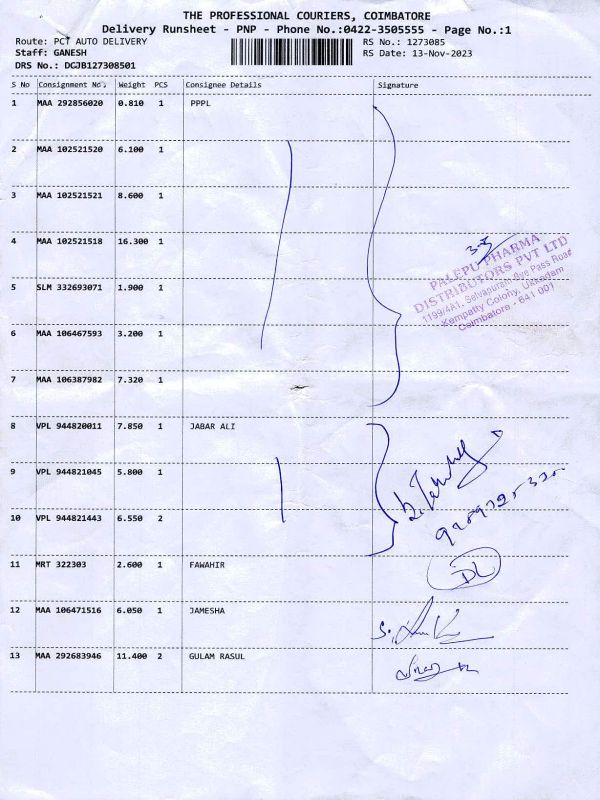 THE PROFESSIONAL COURIERS, COIMBATORE
Delivery Runsheet - PNP - Phone No.:0422-3505555 - Page No.:1
Route: PCT AUTO DELIVERY RS No.: 1273085
Staff: GANESH RS Date: 13-Nov-2023
DRS No.: DGJB127308501
S No Consignment No. Weight PCS Consignee Details Signature
1 MAA 292856020 0.810 1 PPPL
2 MAA 102521520 6.100 1
3 MAA 102521521 8.600 1
4 MAA 102521518 16.300 1
PALEPU PHARMA
DISTRIBUTORS PVT LTD
1199/4A1, Selvapuram Bye Pass Road
Kempatty Colony, Ukkadam
Coimbatore - 641 001
5 SLM 332693071 1.900 1
6 MAA 106467593 3.200 1
7 MAA 106387982 7.320 1
8 VPL 944820011 7.850 1 JABAR ALI
9 VPL 944821045 5.800 1
10 VPL 944821443 6.550 2
11 MRT 322303 2.600 1 FAWAHIR
12 MAA 106471516 6.050 1 JAMESHA
13 MAA 292683946 11.400 2 GULAM RASUL